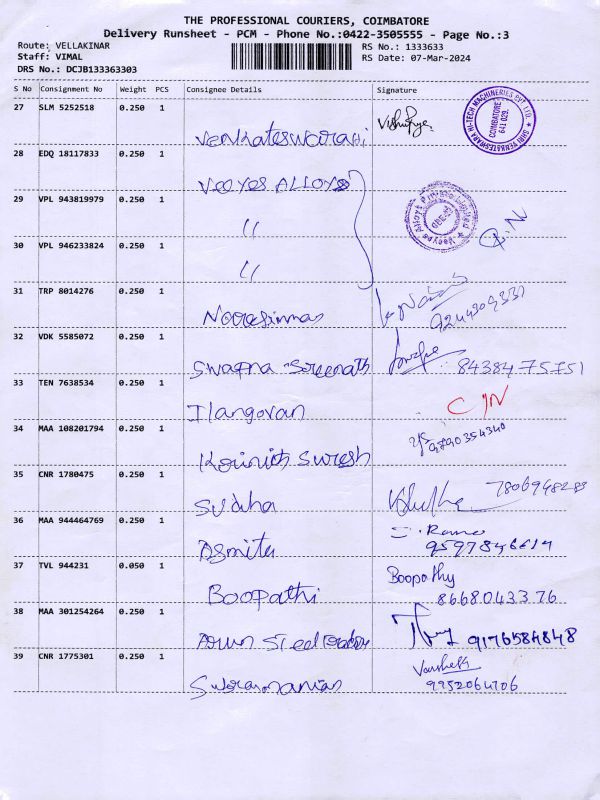 THE PROFESSIONAL COURIERS, COIMBATORE
Delivery Runsheet - PCM - Phone No.:0422-3505555 - Page No.:3
Route: VELLAKINAR RS No.: 1333633
Staff: VIMAL RS Date: 07-Mar-2024
DRS No.: DCJB133363303
S No Consignment No Weight PCS Consignee Details Signature
27 SLM 5252518 0.250 1
SHRI VENKATESWARA HI-TECH MACHINERIES PVT. LTD. COIMBATORE 641 029.
28 EDQ 18117833 0.250 1
VEEYES ALLOYS
29 VPL 943819979 0.250 1
Veeyes Alloys Private Limited
"
30 VPL 946233824 0.250 1
"
31 TRP 8014276 0.250 1
32 VDK 5585072 0.250 1
Swapna Sreenath 8438475751
33 TEN 7638534 0.250 1
Ilangovan
34 MAA 108201794 0.250 1
Suresh 9790354340
35 CNR 1780475 0.250 1
Sudha 7806948283
36 MAA 944464769 0.250 1
Asmita
37 TVL 944231 0.050 1
Boopathi Boopathy
8668043376
38 MAA 301254264 0.250 1
Arun Steel 9176584848
39 CNR 1775301 0.250 1
Subramanian